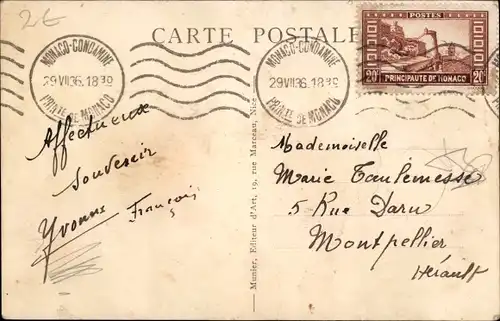 2€
CARTE POSTALE
MONACO-CONDAMINE
29 VII 36. 18 30
PRINTE DE MONACO
MONACO-CONDAMINE
29 VII 36. 18 30
PRINTE DE MONACO
POSTES
20c PRINCIPAUTE DE MONACO 20c
Affectueux
Souvenir
Yvonne François
Munier, Editeur d'Art, 19, rue Marceau, Nice
Mademoiselle
Marie Taulemesse
5 Rue Daru
Montpellier
Hérault